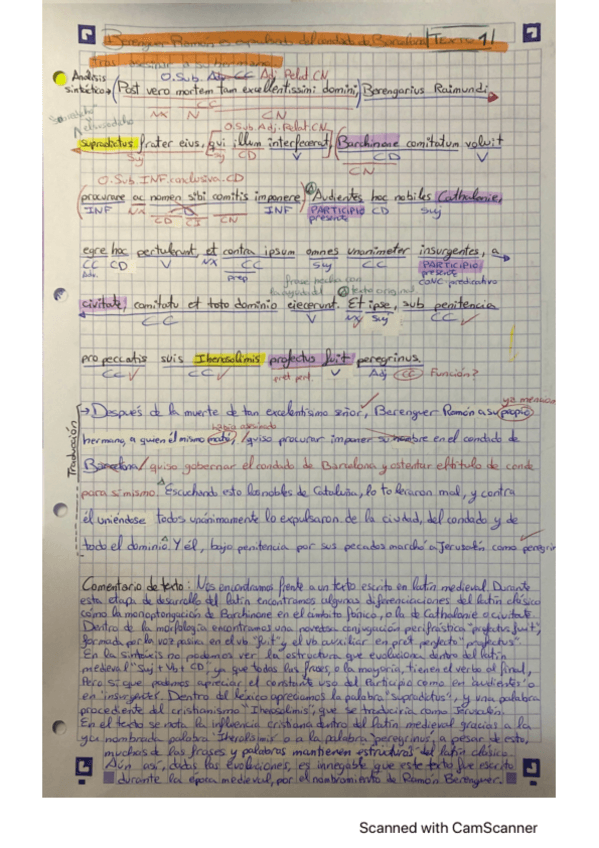 Berenguer Ramón es expulsado del condado de Barcelona Texto 1
tras asesinar a su hermano
Análisis sintáctico → O.Sub. Adj. Relat. CN
(Post vero mortem tam excellentissimi domini, Berengarius Raimundi
CC
NX N CN
O.Sub.Adj.Relat.CN
supradictus frater eius, [qui illum interfecerat,] (Barchinone comitatum voluit
Suj Suj CD V CD V
CN
O.Sub.INF.conclusiva.CD
procurare ac nomen sibi comitis imponere) Audientes hoc nobiles Cathalonie,
INF NX CD CI CN INF PARTICIPIO CD Suj
presente
egre hoc pertulerunt, et contra ipsum omnes unanimeter insurgentes, a
CC CD V NX CC Suj CC PARTICIPIO
Adv. prep presente
conc. predicativo
texto original
civitate, comitatu et toto dominio eiecerunt. Et ipse, sub penitencia
CC V NX Suj CC
pro peccatis suis Iherosolimis profectus fuit peregrinus
CC CC pret. perf. V Adj CC Función?
Traducción
→ Después de la muerte de tan excelentísimo señor, Berenguer Ramón a su propio
había asesinado
hermano, a quien él mismo mató, quiso procurar imponer su nombre en el condado de
Barcelona / quiso gobernar el condado de Barcelona y ostentar el título de conde
para sí mismo. Escuchando esto los nobles de Cataluña, lo toleraron mal, y contra
él uniéndose todos unánimamente lo expulsaron de la ciudad, del condado y de
todo el dominio. Y él, bajo penitencia por sus pecados marchó a Jerusalén como peregrin
Comentario de texto: Nos encontramos frente a un texto escrito en latín medieval. Durante
esta etapa de desarrollo del latín encontramos algunas diferenciaciones del latín clásico
cómo la monoptongación de Barchinone en el ámbito fónico, o la de Cathalonie o civitate.
Dentro de la morfología encontramos una novedosa conjugación perifrástica "profectus fuit",
formada por la voz pasiva en el vb "fuit" y el vb auxiliar en pret. perfecto "profectus".
En la sintaxis no podemos ver la estructura que evoluciona dentro del latín
medieval "Suj + Vb + CD" ya que todas las frases, o la mayoría, tienen el verbo al final,
Pero sí que podemos apreciar el constante uso del Participio como en 'audientes' o
en 'insurgentes'. Dentro del léxico apreciamos la palabra "supradictus", y una palabra
procedente del cristianismo "Iherosolimis", que se traduciría como Jerusalén.
En el texto se nota la influencia cristiana dentro del latín medieval gracias a la
ya nombrada palabra 'Iherosolimis' o a la palabra 'peregrinus', a pesar de esto,
muchas de las frases y palabras mantienen estructuras del latín clásico.
Aún así, dadas las evoluciones, es innegable que este texto fue escrito
durante la época medieval, por el nombramiento de Ramón Berenguer.
Scanned with CamScanner